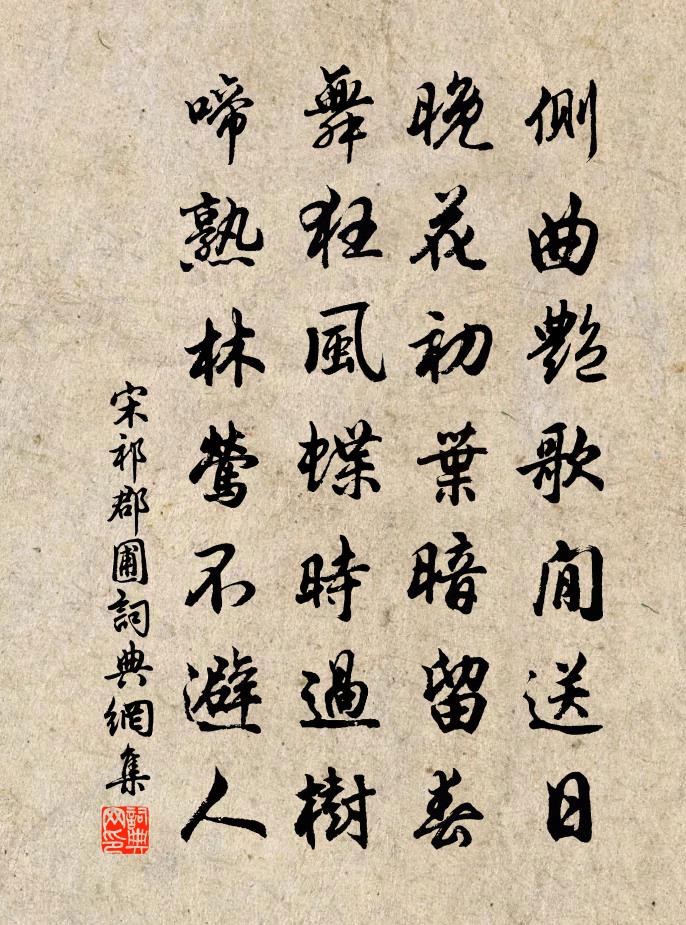 側曲艷歌閒送日
晚花初葉暗留春
舞狂風蝶時過樹
啼熟林鶯不避人
宋祁郡圃詞典網集
詞典
网印